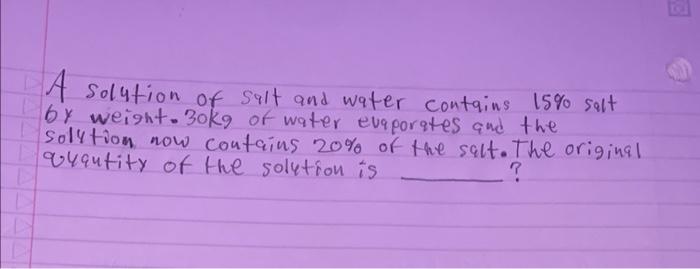 A solution of salt and water contains 15% salt
by weight. 30kg of water evaporates and the
solution now contains 20% of the salt. The original
quantity of the solution is ________?